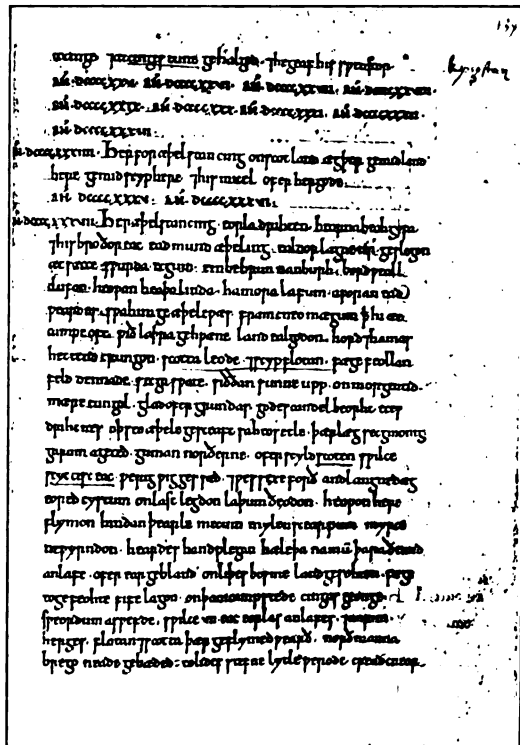 cinge cinges tune gehalgod. ⁊ he geaf his
AN̄. dccccxxv. AN̄. dccccxxvi. AN̄. dccccxxvii. AN̄. dccccxxviii.
AN̄. dccccxxix. AN̄. dccccxxx. AN̄. dccccxxxi. AN̄. dccccxxxii.
AN̄. dccccxxxiii.
AN̄. dccccxxxiiii. Her for æþelstan cing on scotland ægþer ge mid land
here ge mid scyphere ⁊ his micel ofer hergode.
AN̄. dccccxxxv. AN̄. dccccxxxvi.
AN̄. dccccxxxvii. Her æþelstan cing. eorla drihten. beorna beahgyfa
⁊ his broðor eac eadmund æþeling. ealdor lagne tir. geslogon
æt sæcce swurda ecgum. embe brunnanburh. bordweall
clufan. heowan heaþolinda. hamora lafum. aforan ead
weardes. swa him geæþele wæs. fram cneo magum þ hi æt
campe oft. wið laþra gehwane. land ealgodon. hord ⁊ hamas
hettend crungon. scotta leode. ⁊ scypflotan. fæge feollan
feld dennade. secga swate. siððan sunne upp. on morgentid
mære tungol. glad ofer grundas. godes candel beorht. eces
drihtnes oþ seo æþele gesceaft sah to setle. þær læg secg monig
garum ageted. guman norðerne. ofer scyld scoten swilce
scyttisc eac. werig wigges sæd. ⁊ wessexe forð andlangne dæg
eored cystum on last legdon laþum ðeodon. heowon here
flymon hindan þearle mecum mylenscearpum myrce
ne wyrndon. heardes handplegan hæleþa nanum þara ðe mid
anlafe. ofer ear gebland on liþes bosme land gesohtan. fæge
to gefeohte fife lagon. on þam campstede cingas geonge
sweordum aswefede. swilce eac eorlas anlafes.
herges. flotan ⁊ scotta þær geflymed wearð. norðmanna
brego nyde gebæded. to lides stefne lytle werode. cread cnear